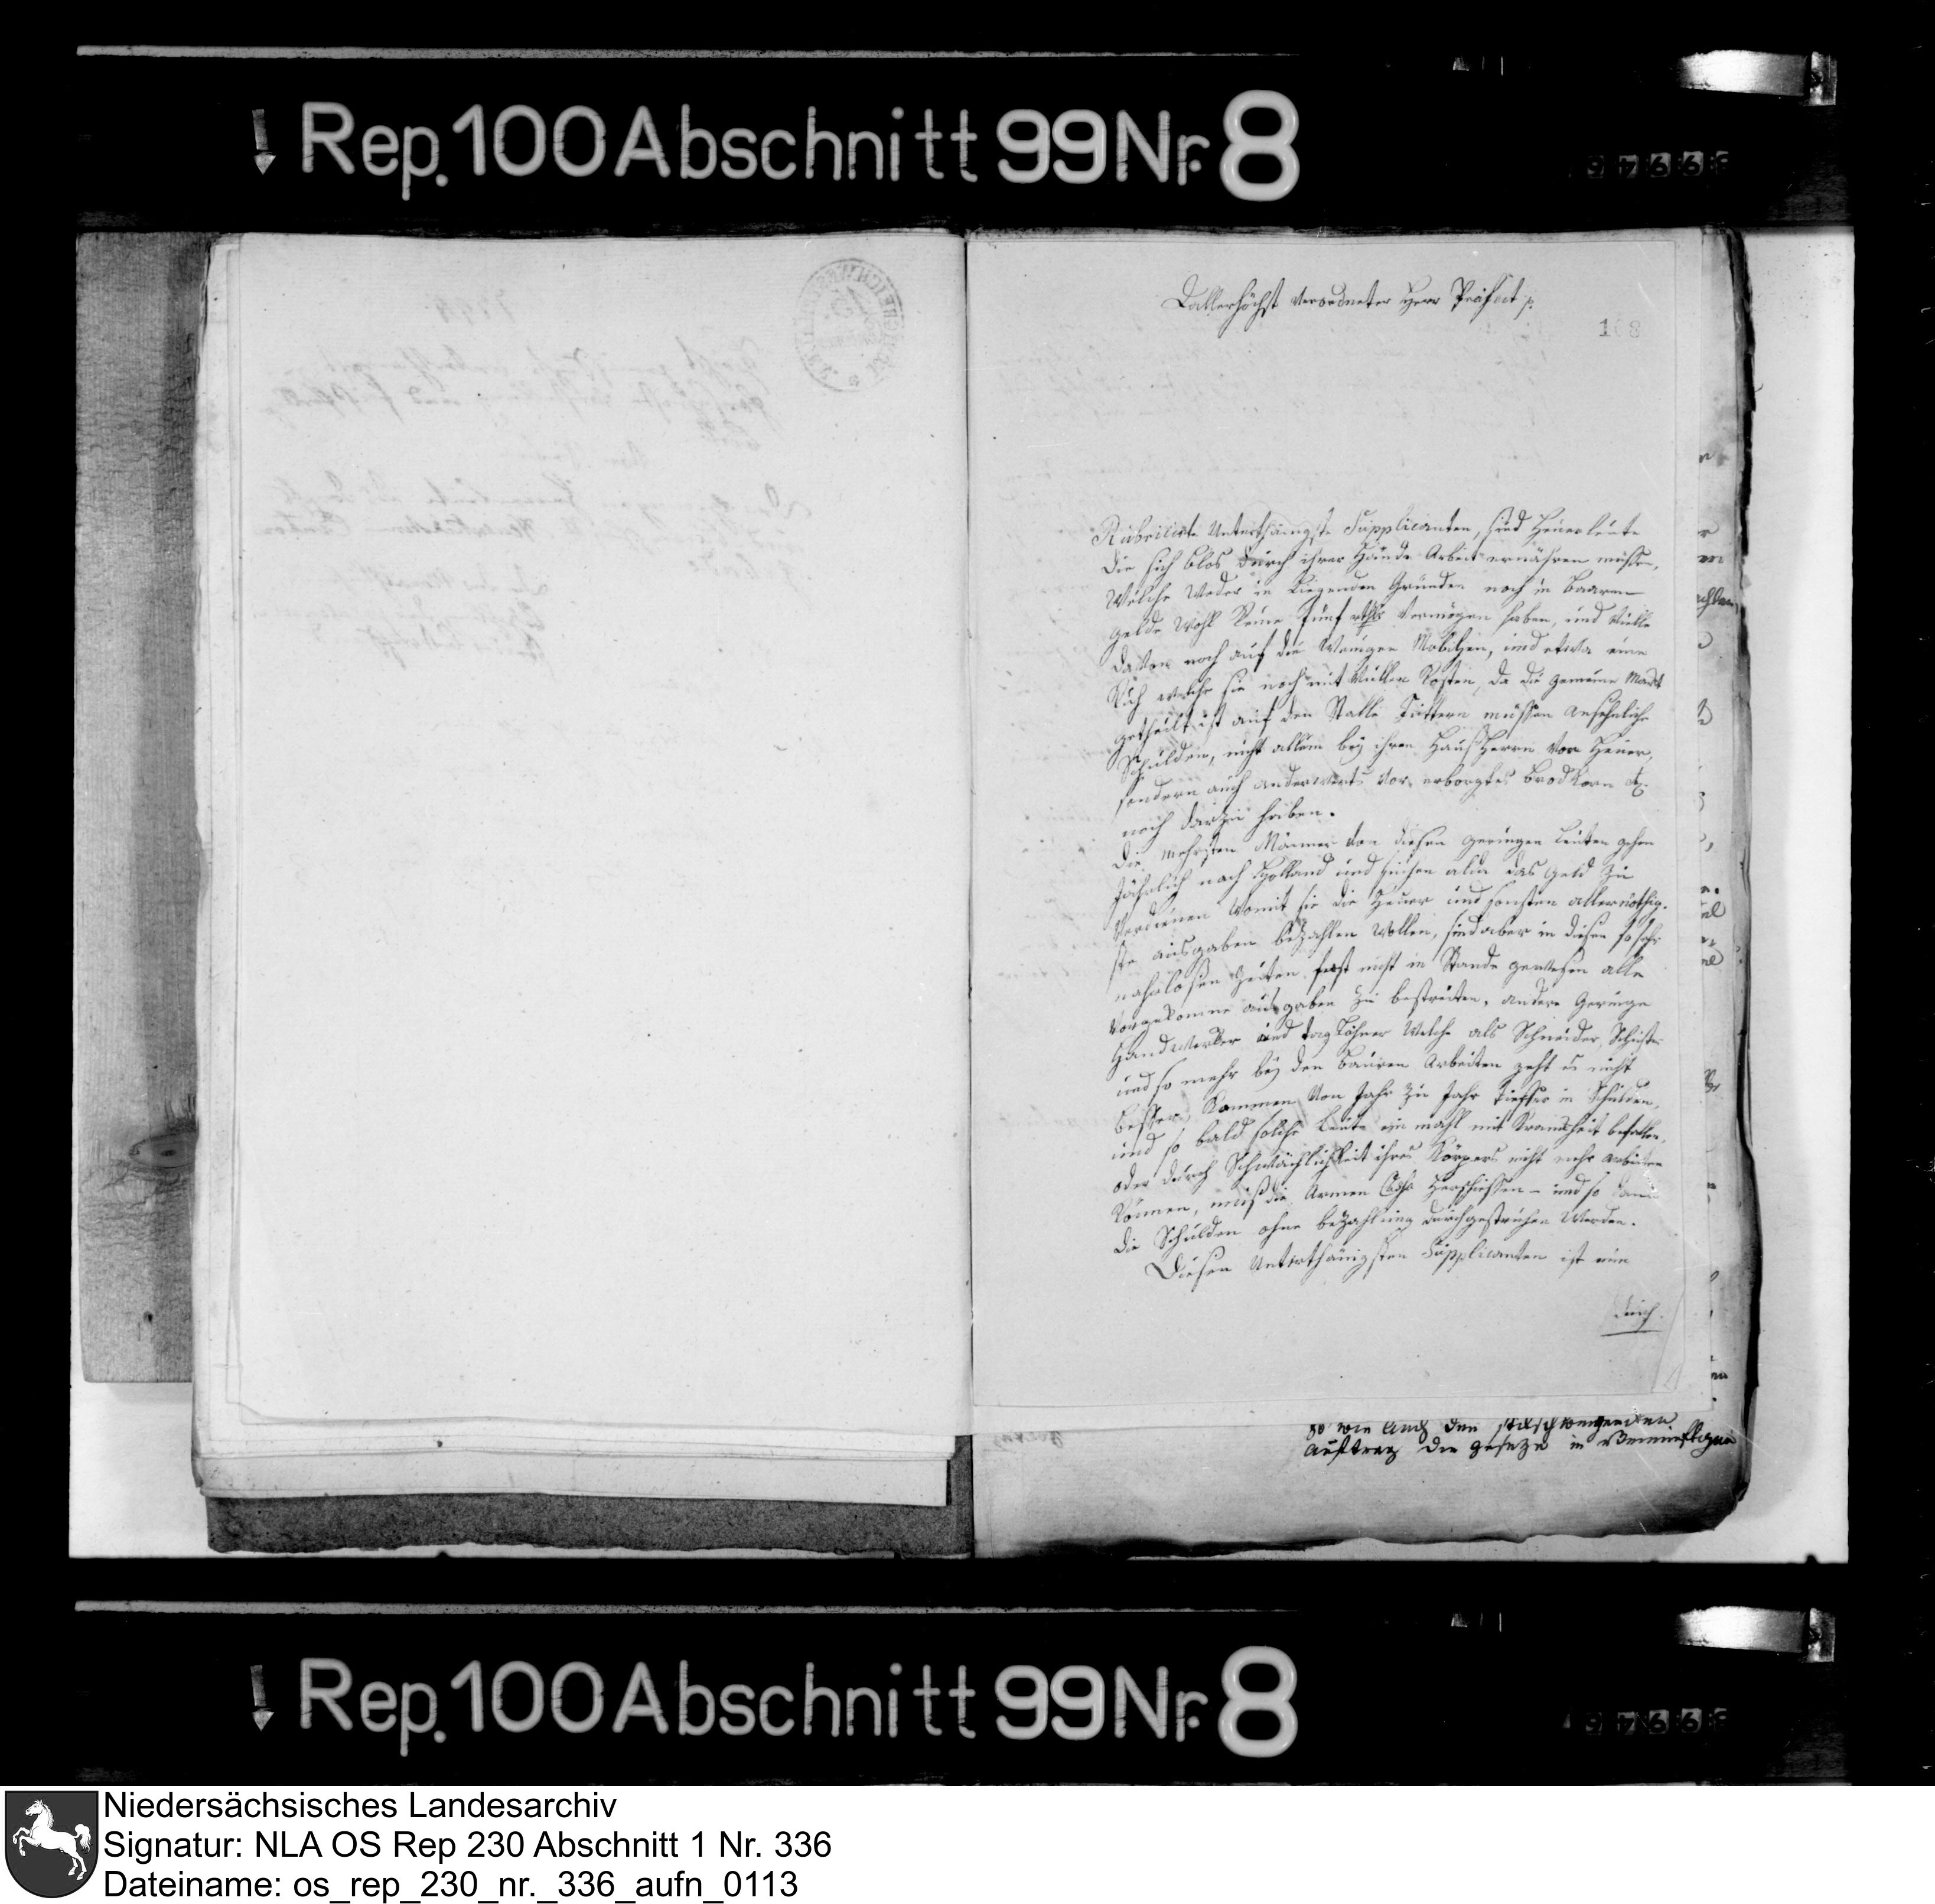 Rep. 100 Abschnitt 99 Nr. 8
Dallerhöchst verordneter Herr Präfect p.
108
Rubricirte Unterthänigste Supplicanten, sind Heuerleute
die sich blos durch ihrer Hände Arbeit ernähren müssen,
Welche Weder in Liegenden Gründen noch in Baaren
gelde Wohl keine fünf rthlr Vermögen haben, und Viele
davon noch auf die Wenigen Mobilien, und etwa eine
Kuh welche sie noch mit Vielen Kosten, da die gemeine Marck
getheilt ist auf den Stalle Füttern müssen ansehnliche
Schulden, nicht allein bey ihren Haus Herrn Von Heuer,
sondern auch anderwerts vor erborgtes Brodkorn etc.
noch darzu haben.
Die mehrsten Männer von diesen geringen Leuten gehen
Jährlich nach Holland und suchen alda das geld zu
Verdienen Womit sie die Heuer und sonsten allernöthig-
ste ausgaben bezahlen Wollen, sind aber in diesen so sehr
nahrlosen Zeiten fast nicht in Stande gewesen alle
Vorgekomne ausgaben zu bestreiten, andere Geringe
Handwerker und tag Löhner Welche als Schneider, Schuster
und so mehr bey den Bauren Arbeiten geht es nicht
besser, Kommen Von Jahr zu Jahr tieffer in Schulden,
und so bald solche Leute ein mahl mit Krankheit befallen,
oder durch Schwächlichkeit ihres Körpers nicht mehr arbeiten
können, muß die Armen Casse herschiessen - und so dann
die Schulden ohne bezahlung durchgestrichen Werden.
Diesen Unterthänigsten Supplicanten ist nun
durch
so wie auch den stilschweigenden
auftrag die gesetze in
Rep. 100 Abschnitt 99 Nr. 8
Niedersächsisches Landesarchiv
Signatur: NLA OS Rep 230 Abschnitt 1 Nr. 336
Dateiname: os_rep_230_nr._336_aufn_0113